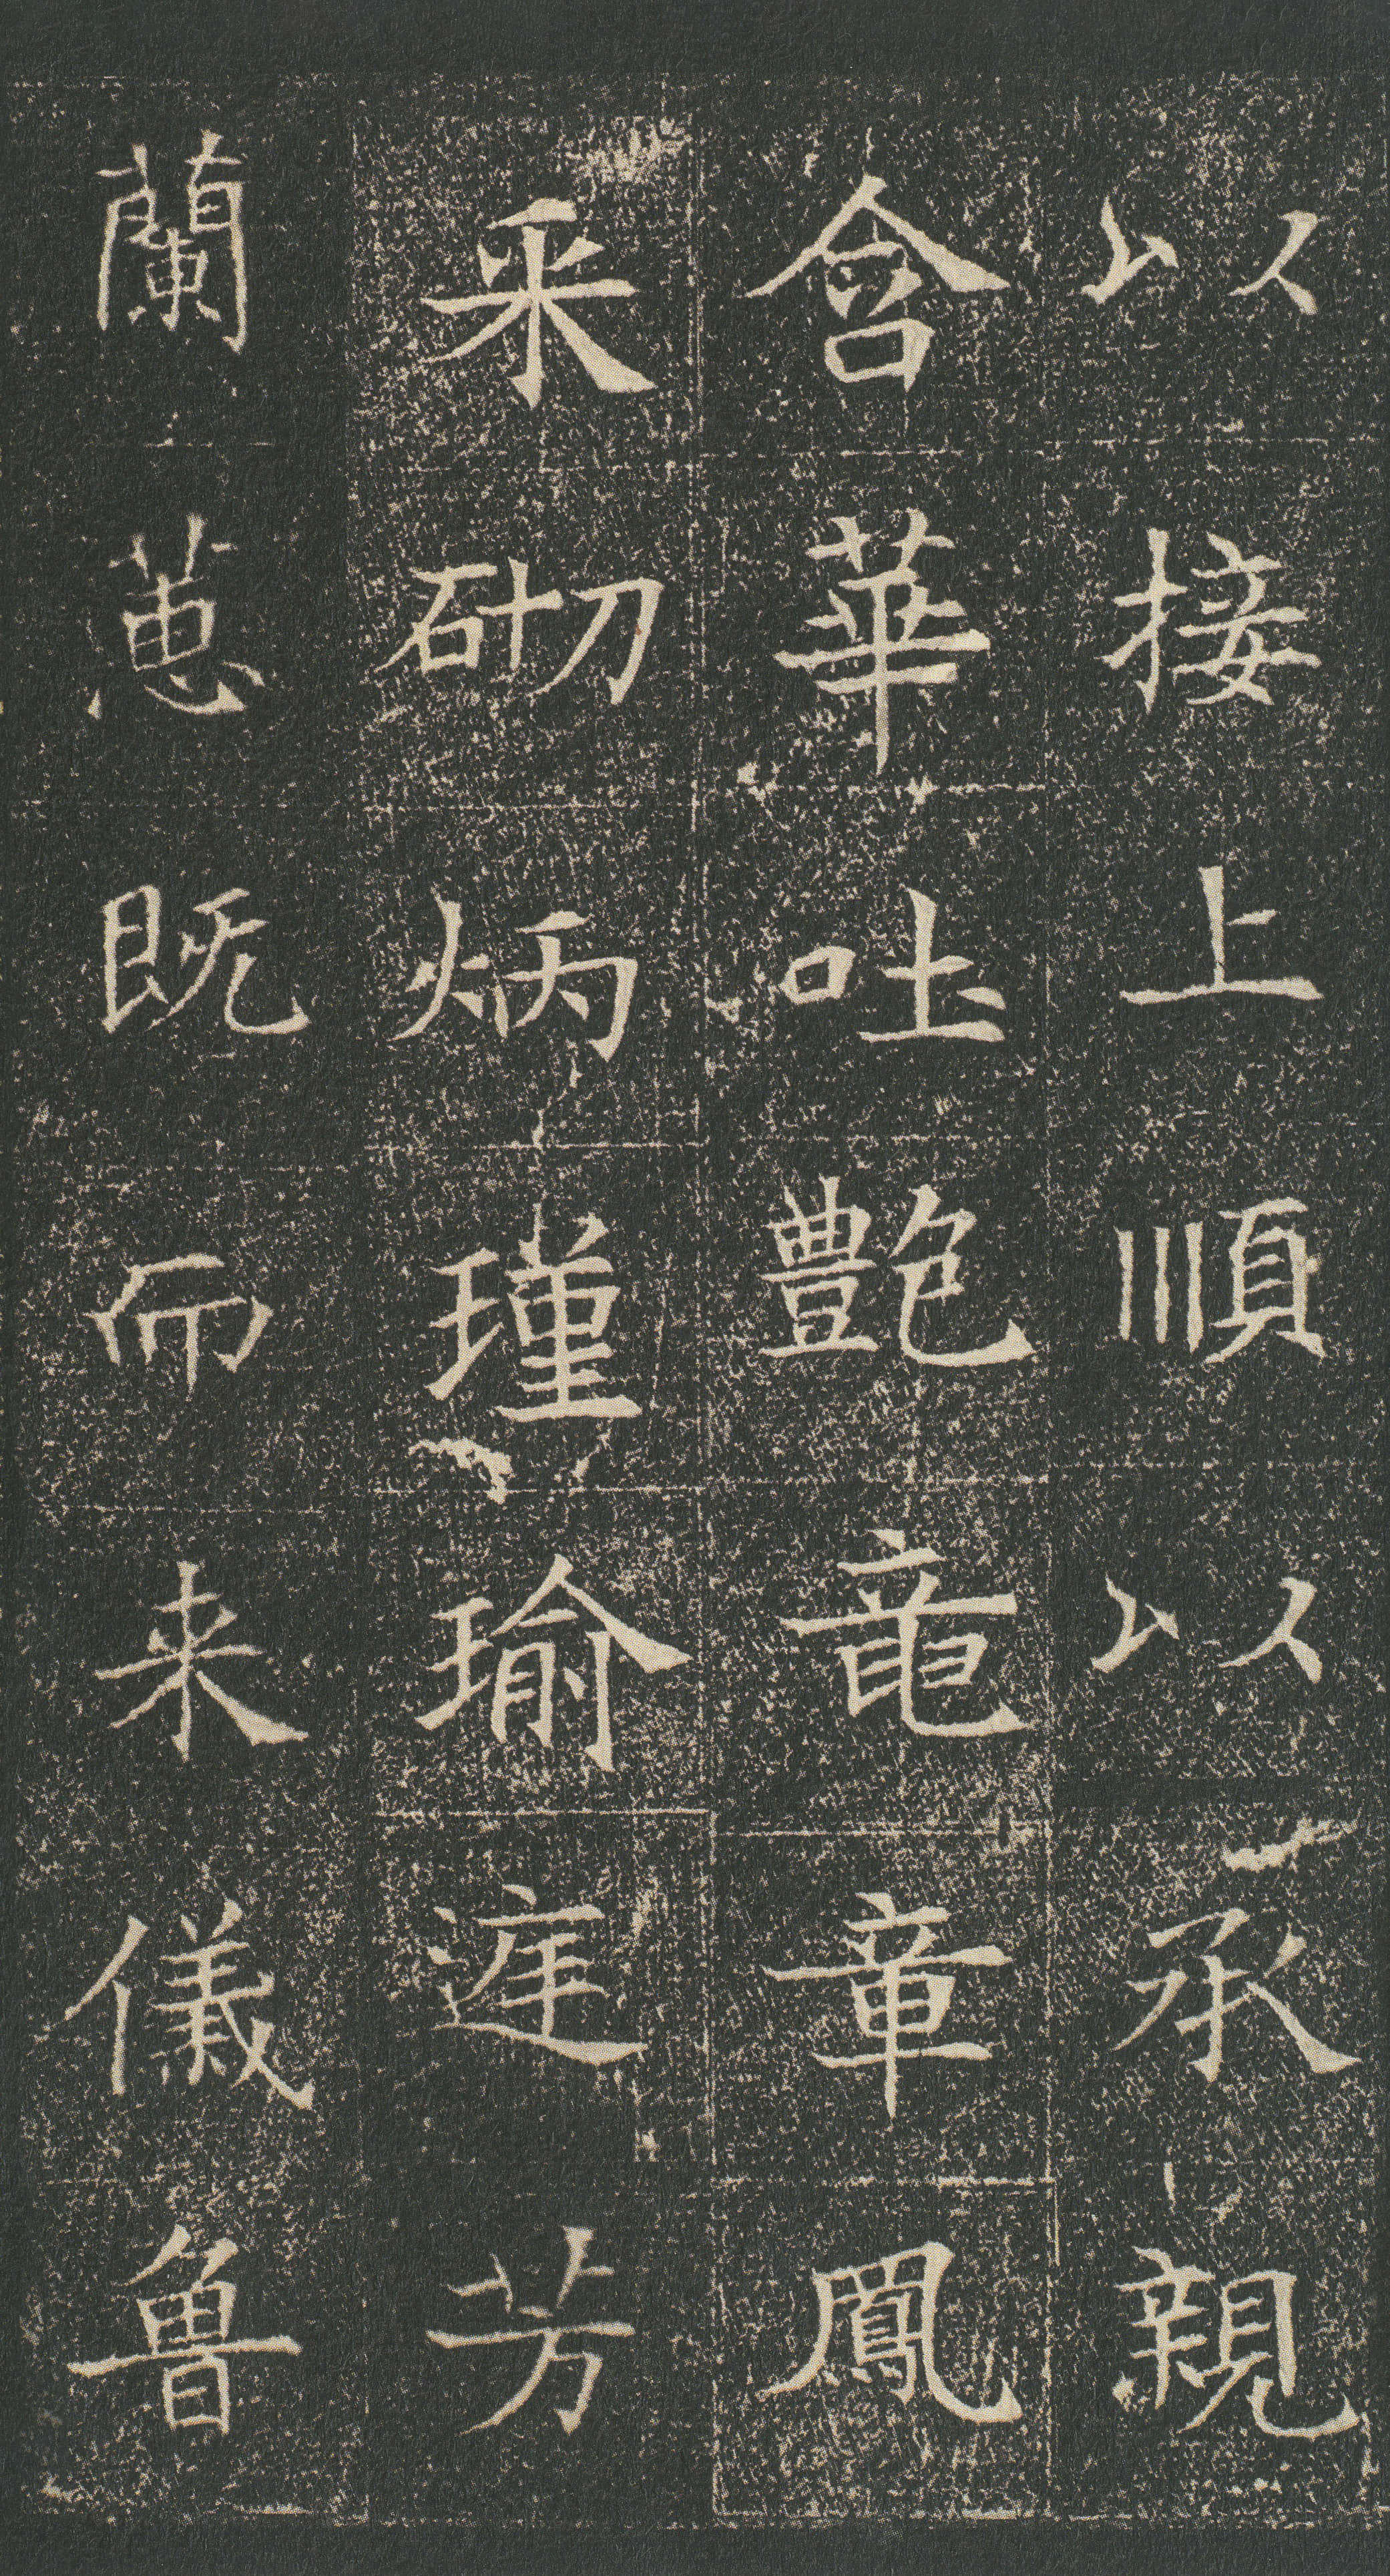 以接上順以承親
含華吐艷竜章鳳
采砌炳瑾瑜遳芳
蘭蕙既而来儀魯